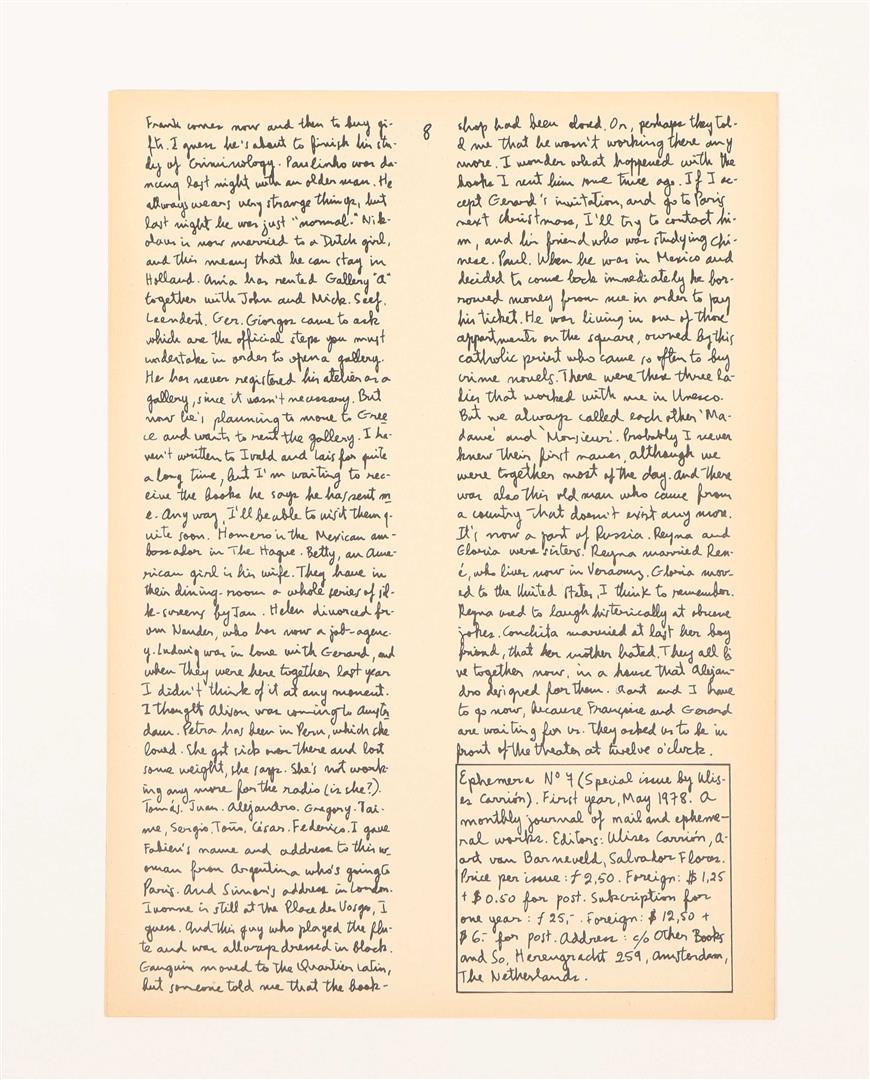 Frank comes now and then to buy gi-
fts. I guess he's about to finish his stu-
dy of Criminology. Paulinho was da-
ncing last night with an older man. He
allways wears very strange things, but
last night he was just "normal." Nik-
olaus is now married to a Dutch girl,
and this means that he can stay in
Holland. Ania has rented Gallery "A"
together with John and Mick. Seef.
Leendert. Ger. Giorgos came to ask
which are the official steps you must
undertake in order to open a gallery.
He has never registered his atelier as a
gallery, since it wasn't necessary. But
now he's planning to move to Gree
ce and wants to rent the gallery. I ha-
ven't written to Ivald and Lais for quite
a long time, but I'm waiting to rec-
eive the books he says he has sent m
e. Any way, I'll be able to visit them q-
uite soon. Homero is the Mexican am-
bassador in The Hague. Betty, an Ame-
rican girl is his wife. They have in
their dining-room a whole series of sil-
k-screens by Jan. Helen divorced fr-
om Nander, who has now a job-agenc-
y. Ludwig was in love with Gerard, and
when they were here together last year
I didn't think of it at any moment.
I thought Alison was coming to Amste
dam. Petra has been in Peru, which she
loved. She got sick over there and lost
some weight, she says. She's not work-
ing any more for the radio (is she?).
Tomás. Juan. Alejandro. Gregory. Jai-
me, Sergio, Toño, César. Federico. I gave
Fabien's name and address to this w-
oman from Argentina who's going to
Paris. And Simon's address in London.
Ivonne is still at the Place des Vosges, I
guess. And this guy who played the flu-
te and was allways dressed in black.
Gauguin moved to the Quartier Latin,
but someone told me that the book-
8
shop had been closed. Or, perhaps they tol-
d me that he wasn't working there any
more. I wonder what happened with the
books I sent him some time ago. If I ac-
cept Gerard's invitation, and go to Paris
next christmass, I'll try to contact hi-
m, and his friend who was studying chi-
nese. Paul. When he was in Mexico and
decided to come back immediately he bor-
rowed money from me in order to pay
his ticket. He was living in one of those
appartments on the square, owned by this
catholic priest who came so often to buy
crime novels. There were these three la-
dies that worked with me in Unesco.
But we always called each other 'Ma-
dame' and 'Monsieur'. Probably I never
knew their first names, although we
were together most of the day. And there
was also this old man who came from
a country that doesn't exist any more.
It's now a part of Russia. Reyna and
Gloria were sisters. Reyna married Ren-
é, who lives now in Veracruz. Gloria mov-
ed to the United States, I think to remember.
Reyna used to laugh histerically at obscene
jokes. Conchita married at last her boy
friend, that her mother hated. They all li
ve together now, in a house that Alejan-
dro designed for them. Aart and I have
to go now, because Françoise and Gerard
are waiting for us. They asked us to be in
front of the theater at twelve o'clock.
Ephemera Nº 7 (Special issue by Ulis-
es Carrión). First year, May 1978. A
monthly journal of mail and epheme-
ral works. Editors: Ulises Carrión, A-
art van Barneveld, Salvador Flores.
Price per issue: f 2,50. Foreign: $ 1,25
+ $ 0.50 for post. Subscription for
one year: f 25,-. Foreign: $ 12,50 +
$ 6.- for post. Address: c/o Other Books
and So, Herengracht 259, Amsterdam,
The Netherlands.